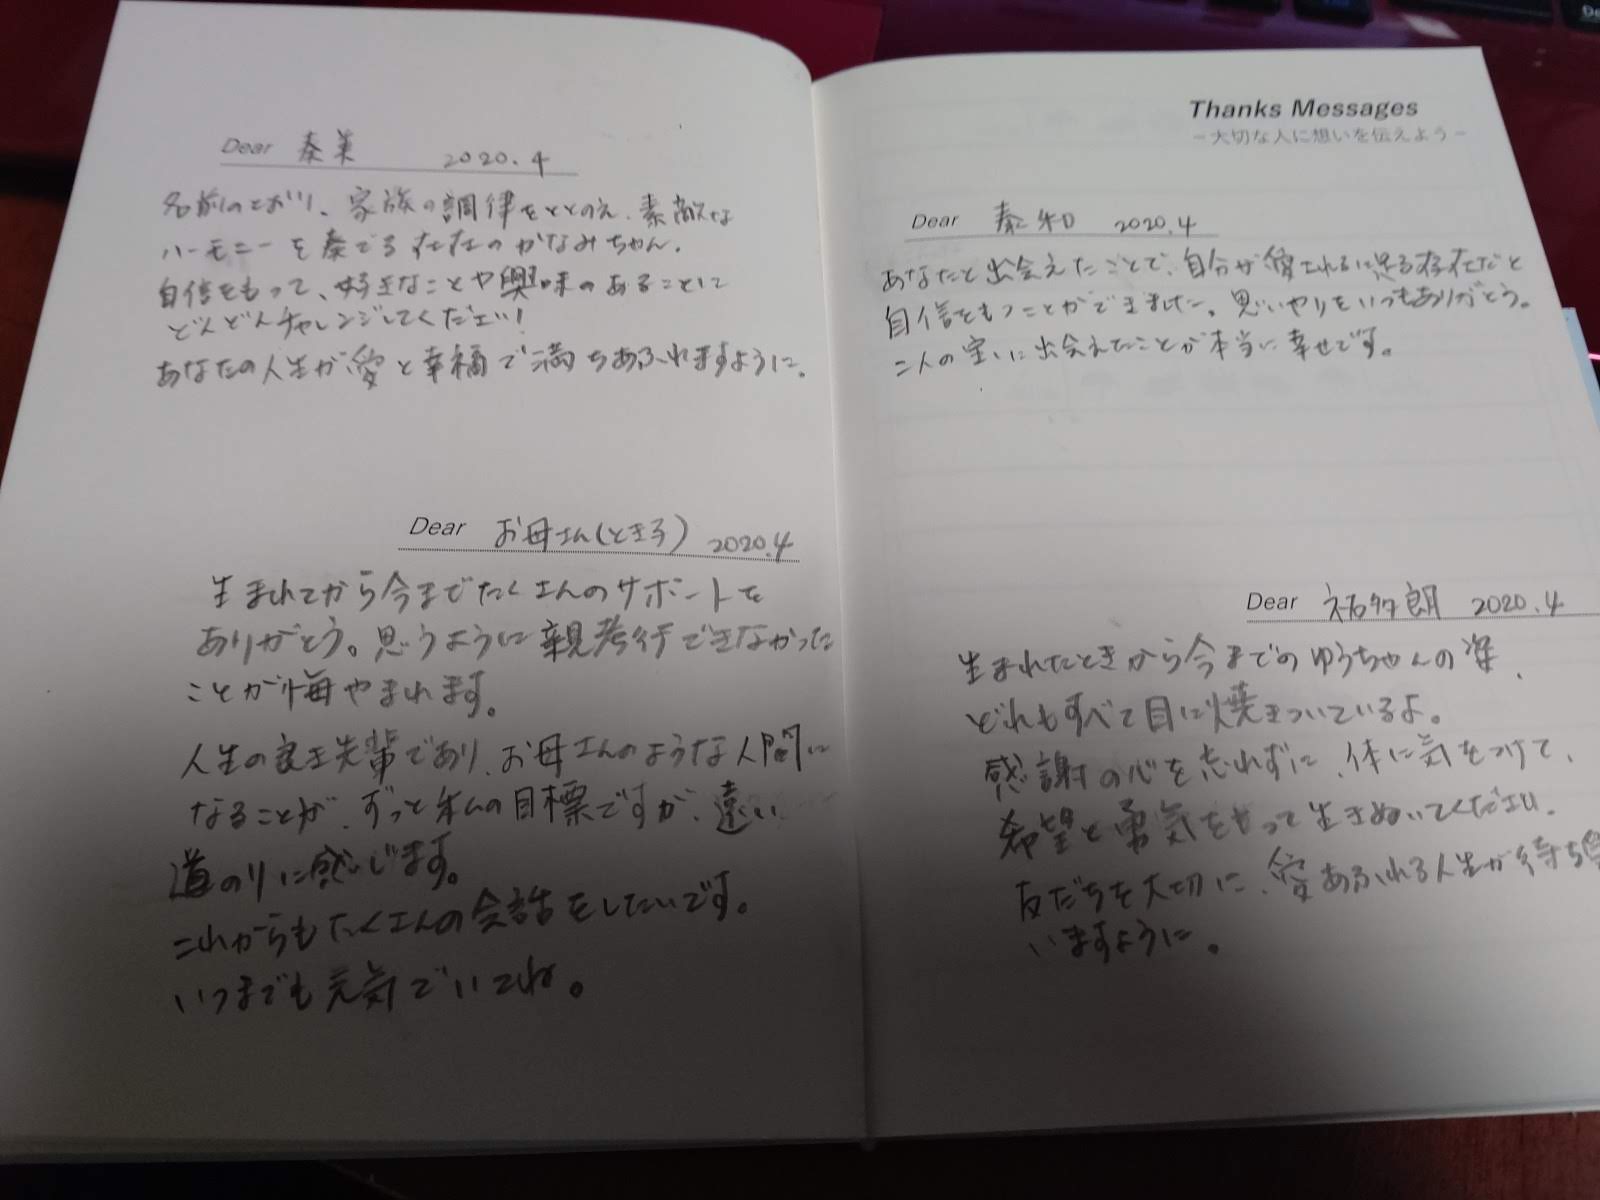 Dear 奏美 2020.4
名前のとおり、家族の調律をととのえ、素敵な
ハーモニーを奏でる存在のかなみちゃん。
自信をもって、好きなことや興味のあることに
どんどんチャレンジしてください!
あなたの人生が愛と幸福で満ちあふれますように。
Dear お母さん(とき子) 2020.4
生まれてから今までたくさんのサポートを
ありがとう。思うように親孝行できなかった
ことが悔やまれます。
人生の良き先輩であり、お母さんのような人間に
なることが、ずっと私の目標ですが、遠い
道のりに感じます。
これからもたくさんの会話をしたいです。
いつまでも元気でいてね。
Thanks Messages
－大切な人に想いを伝えよう－
Dear 和 2020.4
あなたと出会えたことで、自分が愛されるに足る存在だと
自信をもつことができました。思いやりをいつもありがとう。
二人の宝に出会えたことが本当に幸せです。
Dear 祐多朗 2020.4
生まれたときから今までのゆうちゃんの姿、
どれもすべて目に焼きついているよ。
感謝の心を忘れずに、体に気をつけて、
希望と勇気をもって生きぬいてください。
友だちを大切に、愛あふれる人生が待ち受
いますように。